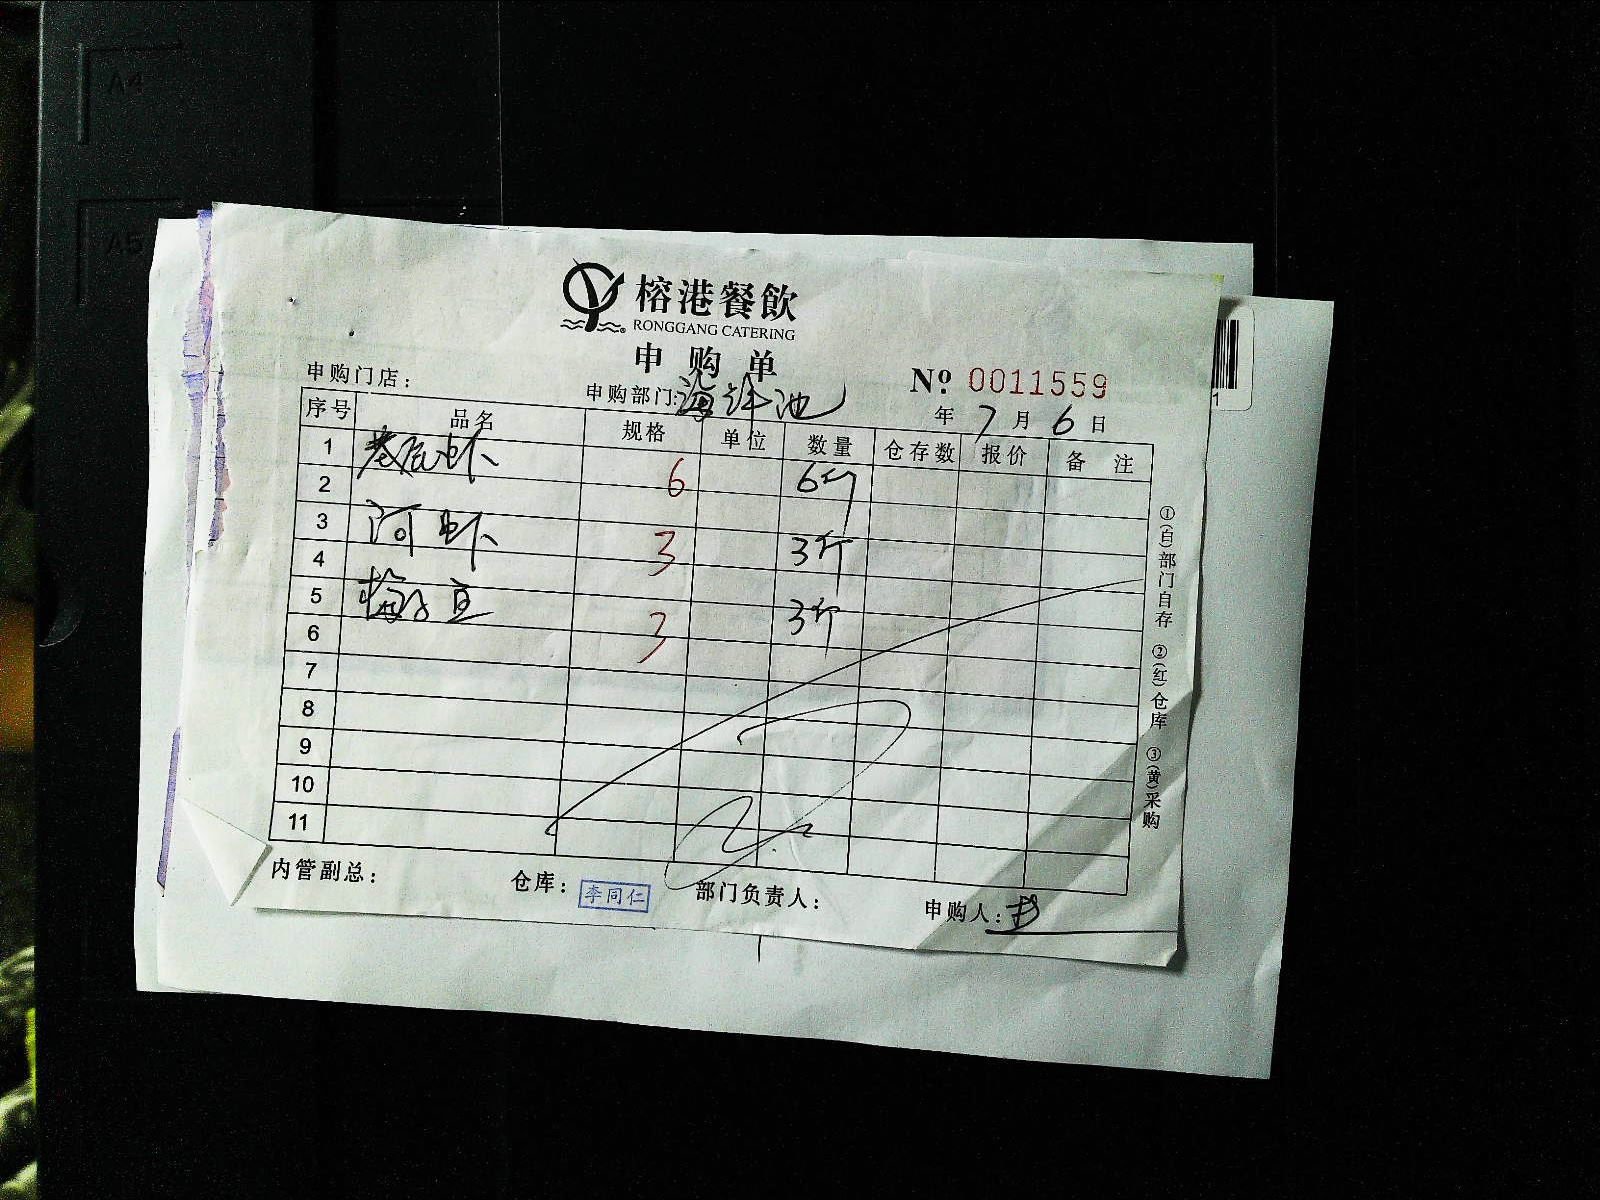 A4
A5
榕港餐飲
RONGGANG CATERING
申购单
申购门店：
申购部门：海鲜池
№ 0011559
年 7 月 6 日
序号 品名 规格 单位 数量 仓存数 报价 备 注
1 虾
2 6 6斤
3 河虾
4 3 3斤
5
6 3 3斤
7
8
9
10
11
内管副总：
仓库：李同仁
部门负责人：
申购人：
①(白)部门自存 ②(红)仓库 ③(黄)采购
1